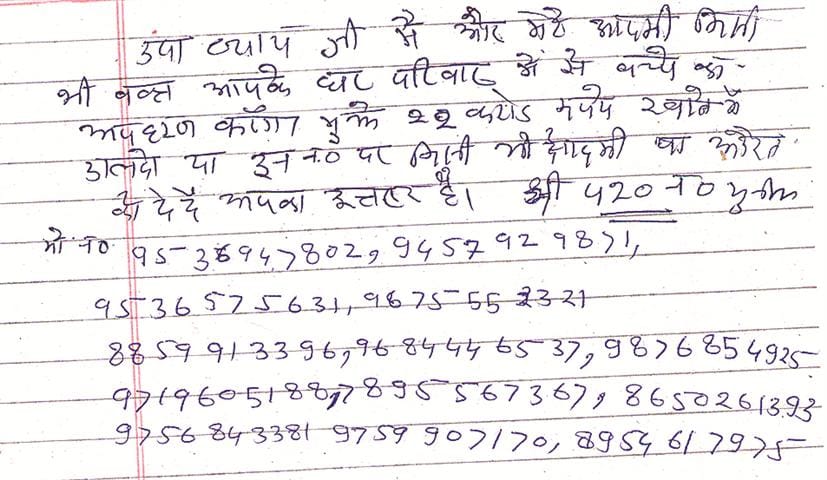 उपा व्याय जी मै और मेरे आदमी किसी
भी वक्त आपके घर परिवार में से बच्चे का
अपहरण करेंगा मुझे 22 करोड रूपये खाते में
डालदो या इन न0 पर किसी भी आदमी या औरत
को दे दें आपका इन्तजार है। श्री 420 न0
मो न0 9536947802, 9457929871,
9536575631, 9675552321
8859913396, 9684446537, 9876854925
9719605188, 7895567367, 8650261393
9756843381 9759907170, 8954617975